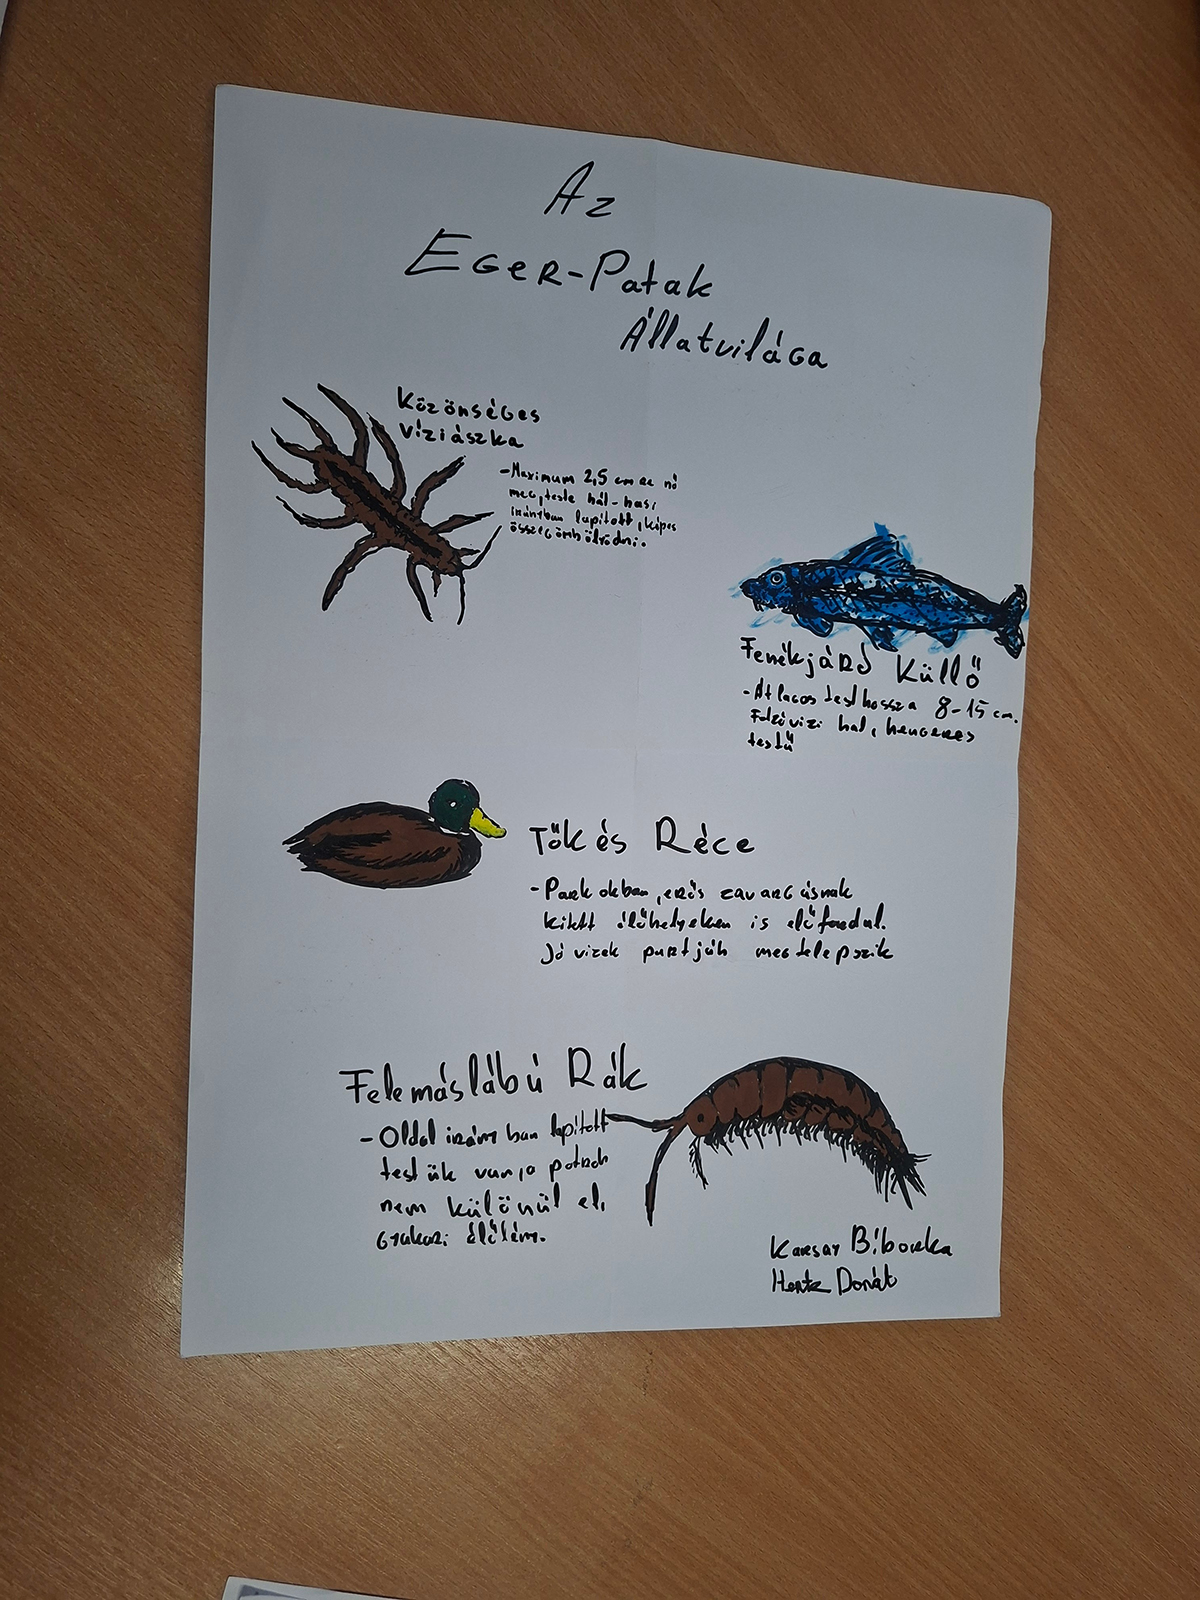 Az
Eger-Patak
Állatvilága
Közönséges
víziászka
-Maximum 2,5 cm-re nő
meg, teste hát-hasi
irányban lapított, képes
összegömbölyödni.
Fenékjáró Küllő
-Átlagos testhossza 8-15 cm.
Folyóvizi hal, hengeres
testű
Tőkés Réce
-Parkokban, erős zavarásnak
kitett élőhelyeken is előfordul.
Jó vizek partján megtelepszik
Felemáslábú Rák
-Oldal irányban lapított
testük van, a potroh
nem különül el,
gyakori élőlény.
Karsay Bíborka
Donát